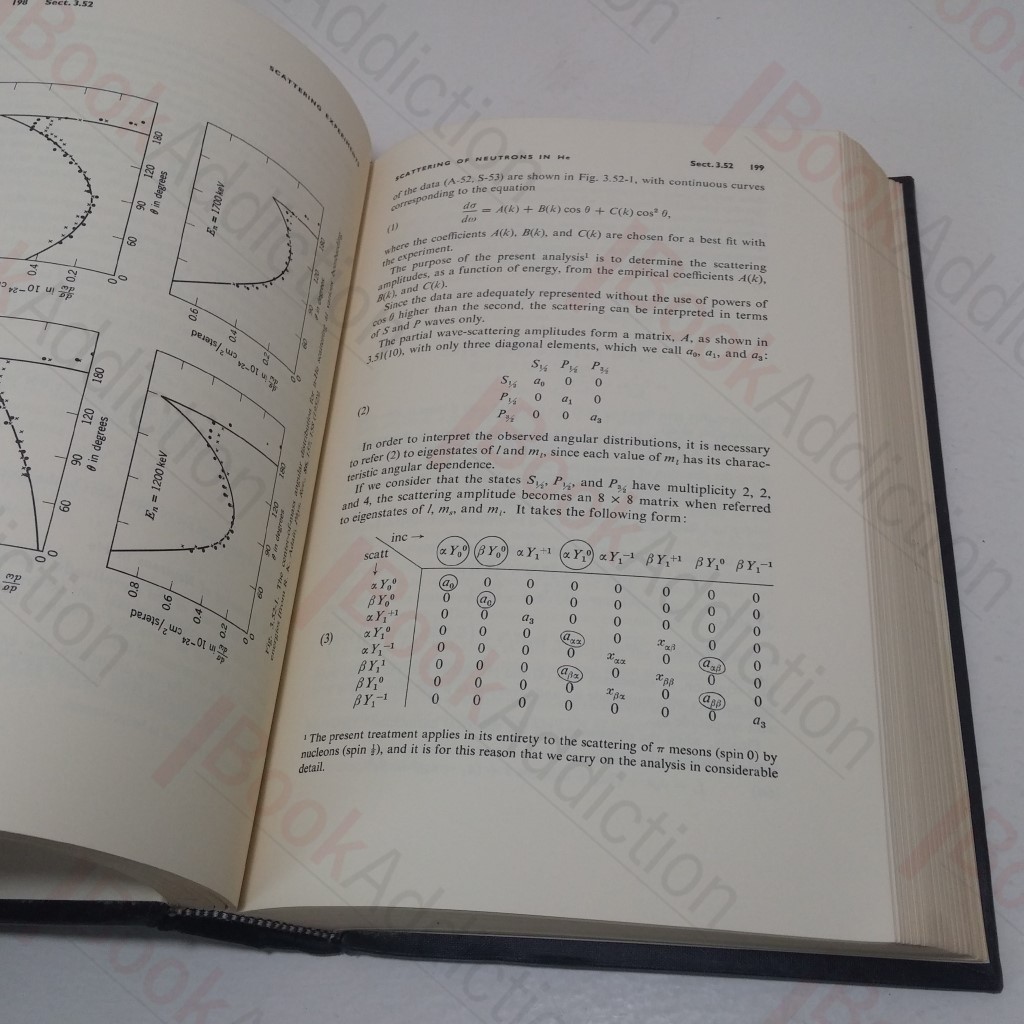 198 Sect. 3.52
SCATTERING EXPERIMENTS
0.4
0.2
0
0
60
90
120
180
θ in degrees
0
60
90
120
180
θ in degrees
Eₙ = 1700 keV
0.6
0.4
0.2
0
60
120
180
θ in degrees
in 10⁻²⁴ cm²/sterad
Eₙ = 1200 keV
0.8
0.6
0.4
0.2
0
60
90
120
180
θ in degrees
in 10⁻²⁴ cm²/sterad
SCATTERING OF NEUTRONS IN He Sect. 3.52 199
of the data (A-52, S-53) are shown in Fig. 3.52-1, with continuous curves
corresponding to the equation
(1) dσ/dω = A(k) + B(k) cos θ + C(k) cos² θ,
where the coefficients A(k), B(k), and C(k) are chosen for a best fit with
the experiment.
The purpose of the present analysis¹ is to determine the scattering
amplitudes, as a function of energy, from the empirical coefficients A(k),
B(k), and C(k).
Since the data are adequately represented without the use of powers of
cos θ higher than the second, the scattering can be interpreted in terms
of S and P waves only.
The partial wave-scattering amplitudes form a matrix, A, as shown in
3.51(10), with only three diagonal elements, which we call a₀, a₁, and a₃:
S½ P½ P³⁄₂
S½ a₀ 0 0
P½ 0 a₁ 0
(2) P³⁄₂ 0 0 a₃
In order to interpret the observed angular distributions, it is necessary
to refer (2) to eigenstates of l and mₗ, since each value of mₗ has its charac-
teristic angular dependence.
If we consider that the states S½, P½, and P³⁄₂ have multiplicity 2, 2,
and 4, the scattering amplitude becomes an 8 × 8 matrix when referred
to eigenstates of l, mₛ, and mₗ. It takes the following form:
inc → αY₀⁰ βY₀⁰ αY₁⁺¹ αY₁⁰ αY₁⁻¹ βY₁⁺¹ βY₁⁰ βY₁⁻¹
scatt
↓
αY₀⁰ a₀ 0 0 0 0 0 0 0
βY₀⁰ 0 a₀ 0 0 0 0 0 0
αY₁⁺¹ 0 0 a₃ 0 0 0 0 0
(3) αY₁⁰ 0 0 0 a_αα 0 x_αβ 0 0
αY₁⁻¹ 0 0 0 0 x_αα 0 a_αβ 0
βY₁¹ 0 0 0 a_βα 0 x_ββ 0 0
βY₁⁰ 0 0 0 0 x_βα 0 a_ββ 0
βY₁⁻¹ 0 0 0 0 0 0 0 a₃
¹ The present treatment applies in its entirety to the scattering of π mesons (spin 0) by
nucleons (spin ½), and it is for this reason that we carry on the analysis in considerable
detail.
BookAddiction